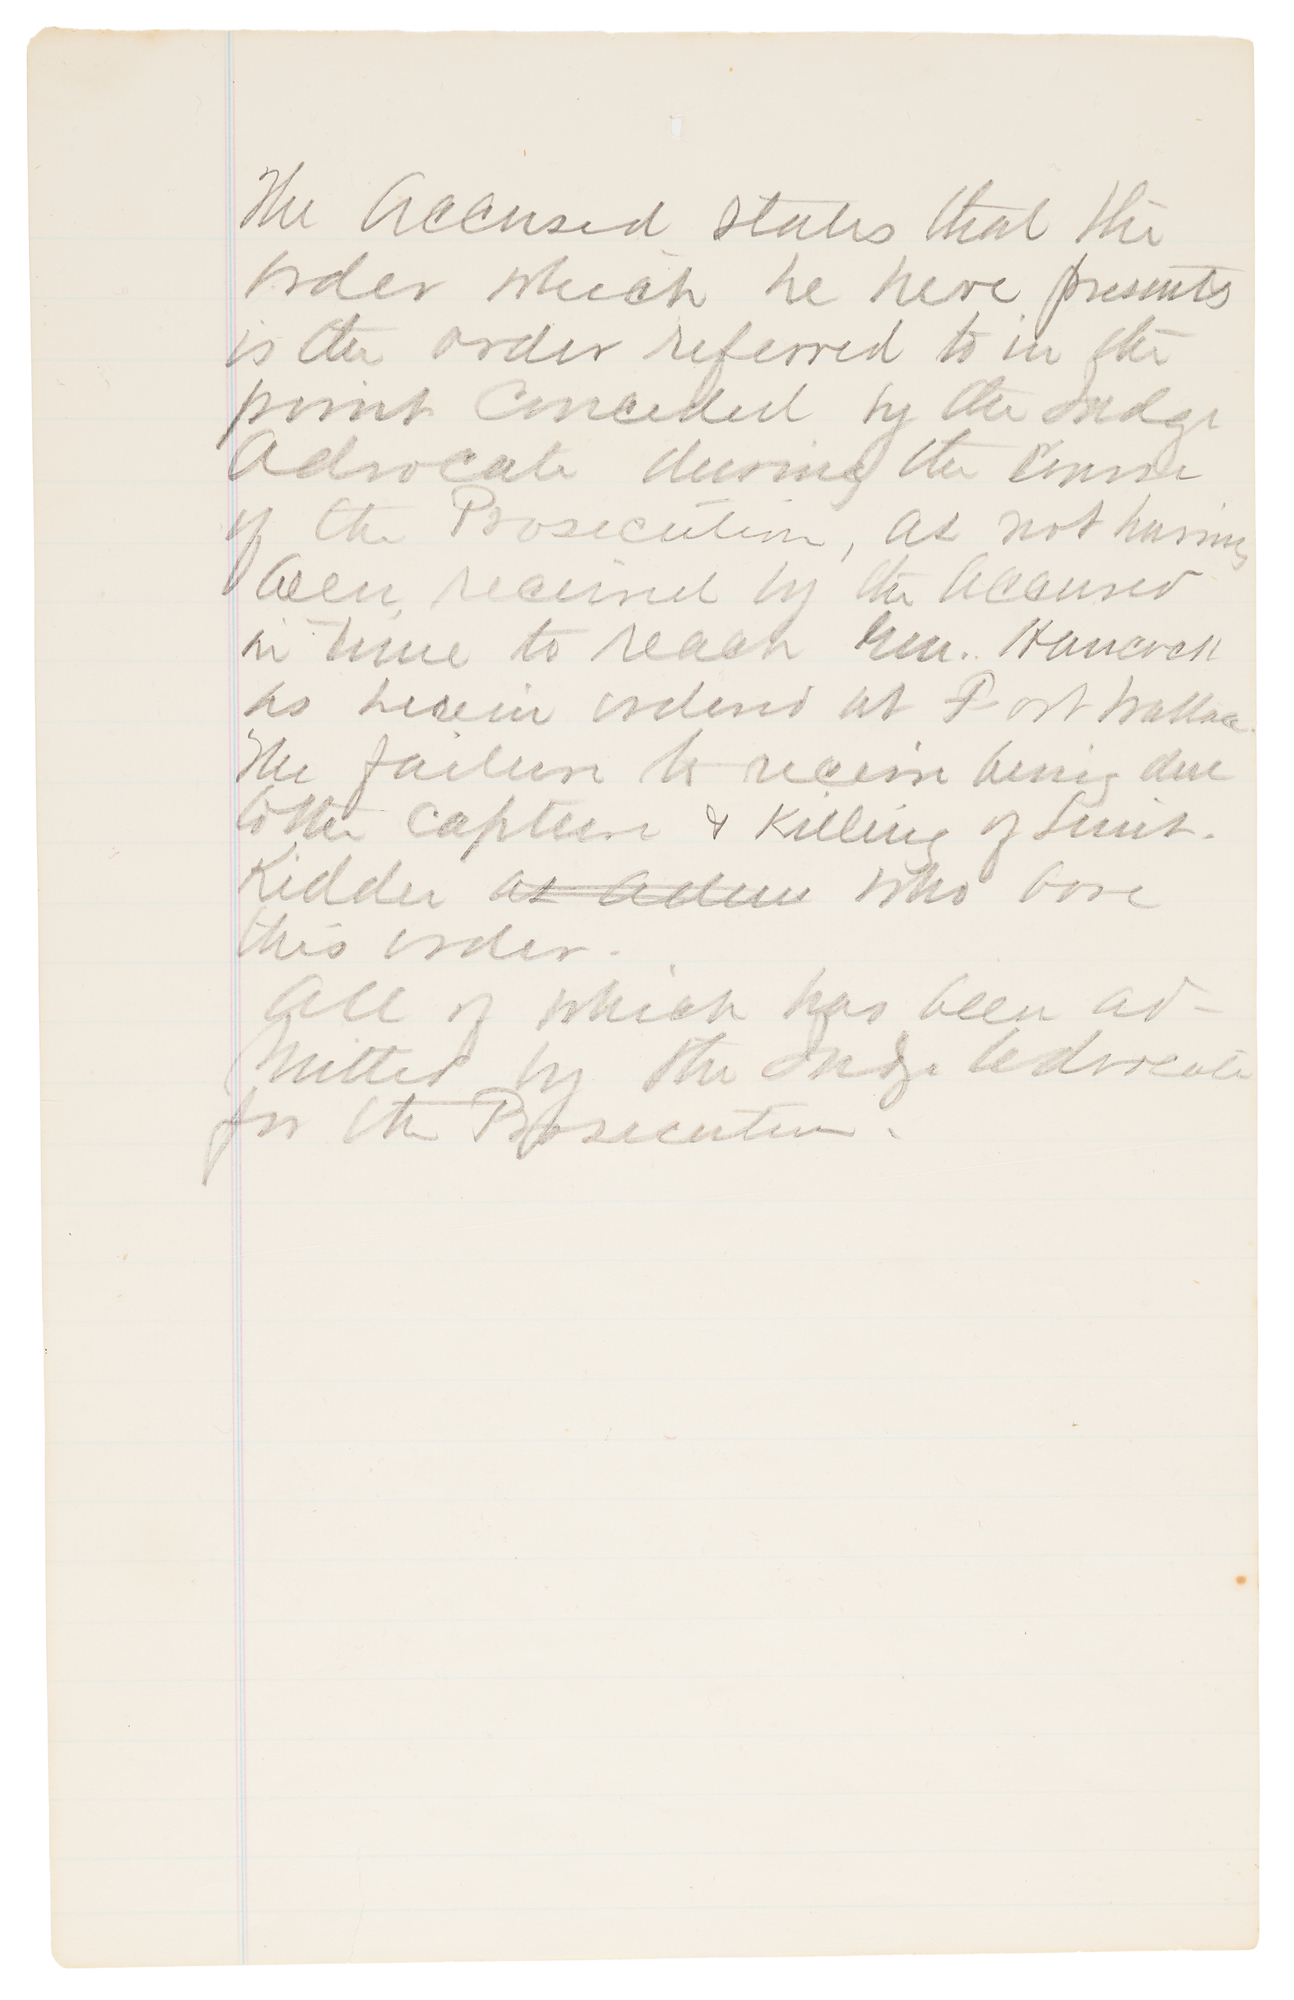 The Accused states that the
order which he here presents
is the order referred to in the
point conceded by the Judge
Advocate during the course
of the Prosecution, as not having
been received by the accused
in time to reach Gen. Hancock
as herein ordered at Fort Wallace.
The failure to receive being due
to the capture & killing of Lieut.
Kidder as who bore
this order.
All of which has been ad-
mitted by the Judge Advocate
for the Prosecution.